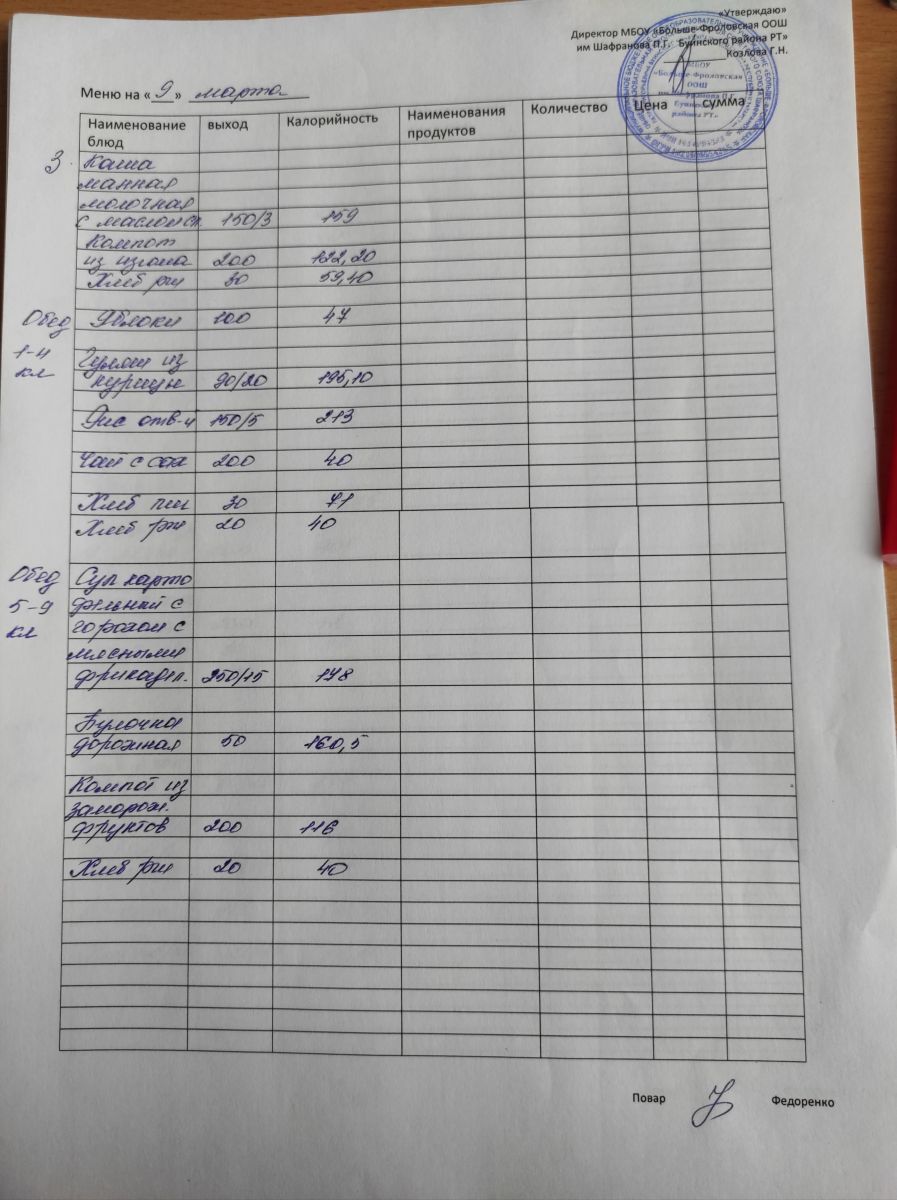 «Утверждаю»
Директор МБОУ «Больше-Фроловская ООШ
им Шафранова П.Г. Буинского района РТ»
Козлова Г.Н.
МБОУ
«Больше-Фроловская
ООШ
им. Шафранова П.Г.
Буинского
района РТ»
Меню на « 9 » марта
Наименование блюд выход Калорийность Наименования продуктов Количество Цена сумма
З. Каша
манная
молочная
с маслом сл. 150/3 159
Компот
из изюма 200 122,20
Хлеб рж 30 59,40
Обед Яблоки 100 47
1-4 Гуляш из
кл курицы 90/20 195,10
Рис отв-й 150/5 213
Чай с сах 200 40
Хлеб пш 30 71
Хлеб рж 20 40
Обед Суп карто
5-9 фельный с
кл горохом с
мясными
фрикадел. 250/15 148
Булочка
дорожная 50 160,5
Компот из
заморож.
фруктов 200 116
Хлеб рж 20 40
Повар Федоренко